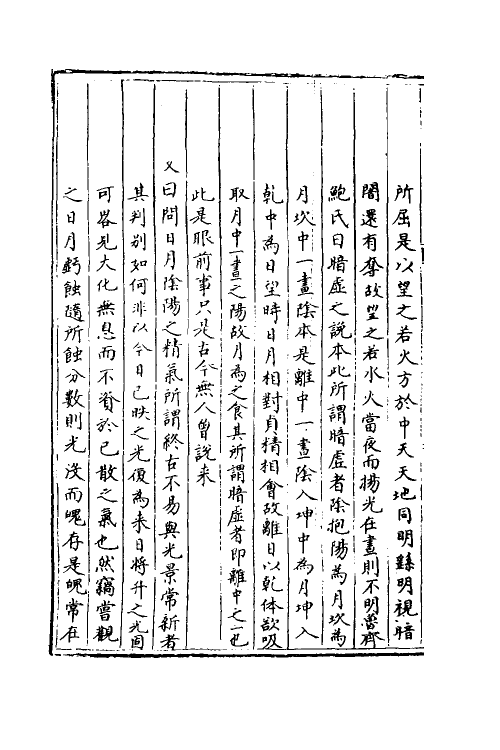 所屈是以望之若火方於中天天地同明繇明視暗
闇還有奪故望之若水火當夜而揚光在晝則不明魯齊
鮑氏曰暗虛之說本此所謂暗虛者陰抱陽為月坎為
月坎中一畫陰本是離中一畫陰入坤中為月坤入
乾中為日望時日月相對貞精相會故離日以乾体欲吸
取月中一畫之陽故月為之食其所謂暗虛者即離中之一也
此是眼前事只是古今無人曾說来
又曰問日月陰陽之精氣所謂終古不易與光景常新者
其判别如何非以今日已映之光復為来日将升之光固
可畧見大化無息而不資於已散之氣也然竊嘗觀
之日月虧蝕隨所蝕分數則光没而魄存是魄常在